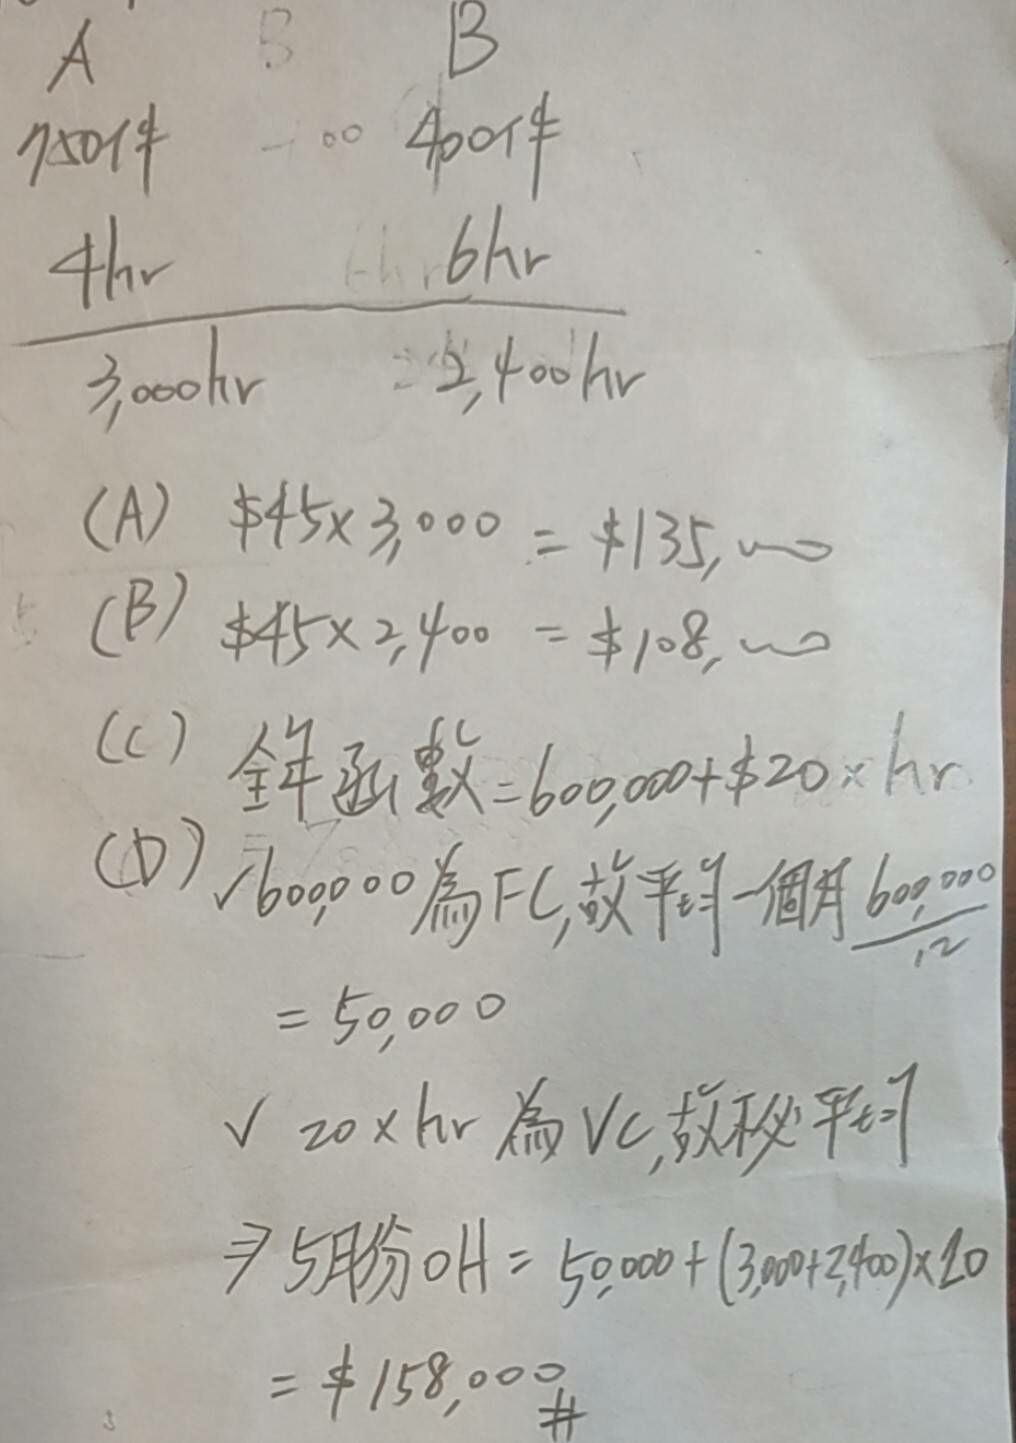 A B
750件 400件
4hr 6hr
3,000hr 2,400hr
(A) $45×3,000 = $135,000
(B) $45×2,400 = $108,000
(C) 全年函數=600,000+$20×hr
(D) √600,000為FC,故平均一個月600,000/12
=50,000
√ 20×hr 為VC,故不必平均
⇒5月份OH=50,000+(3,000+2,400)×20
=$158,000#